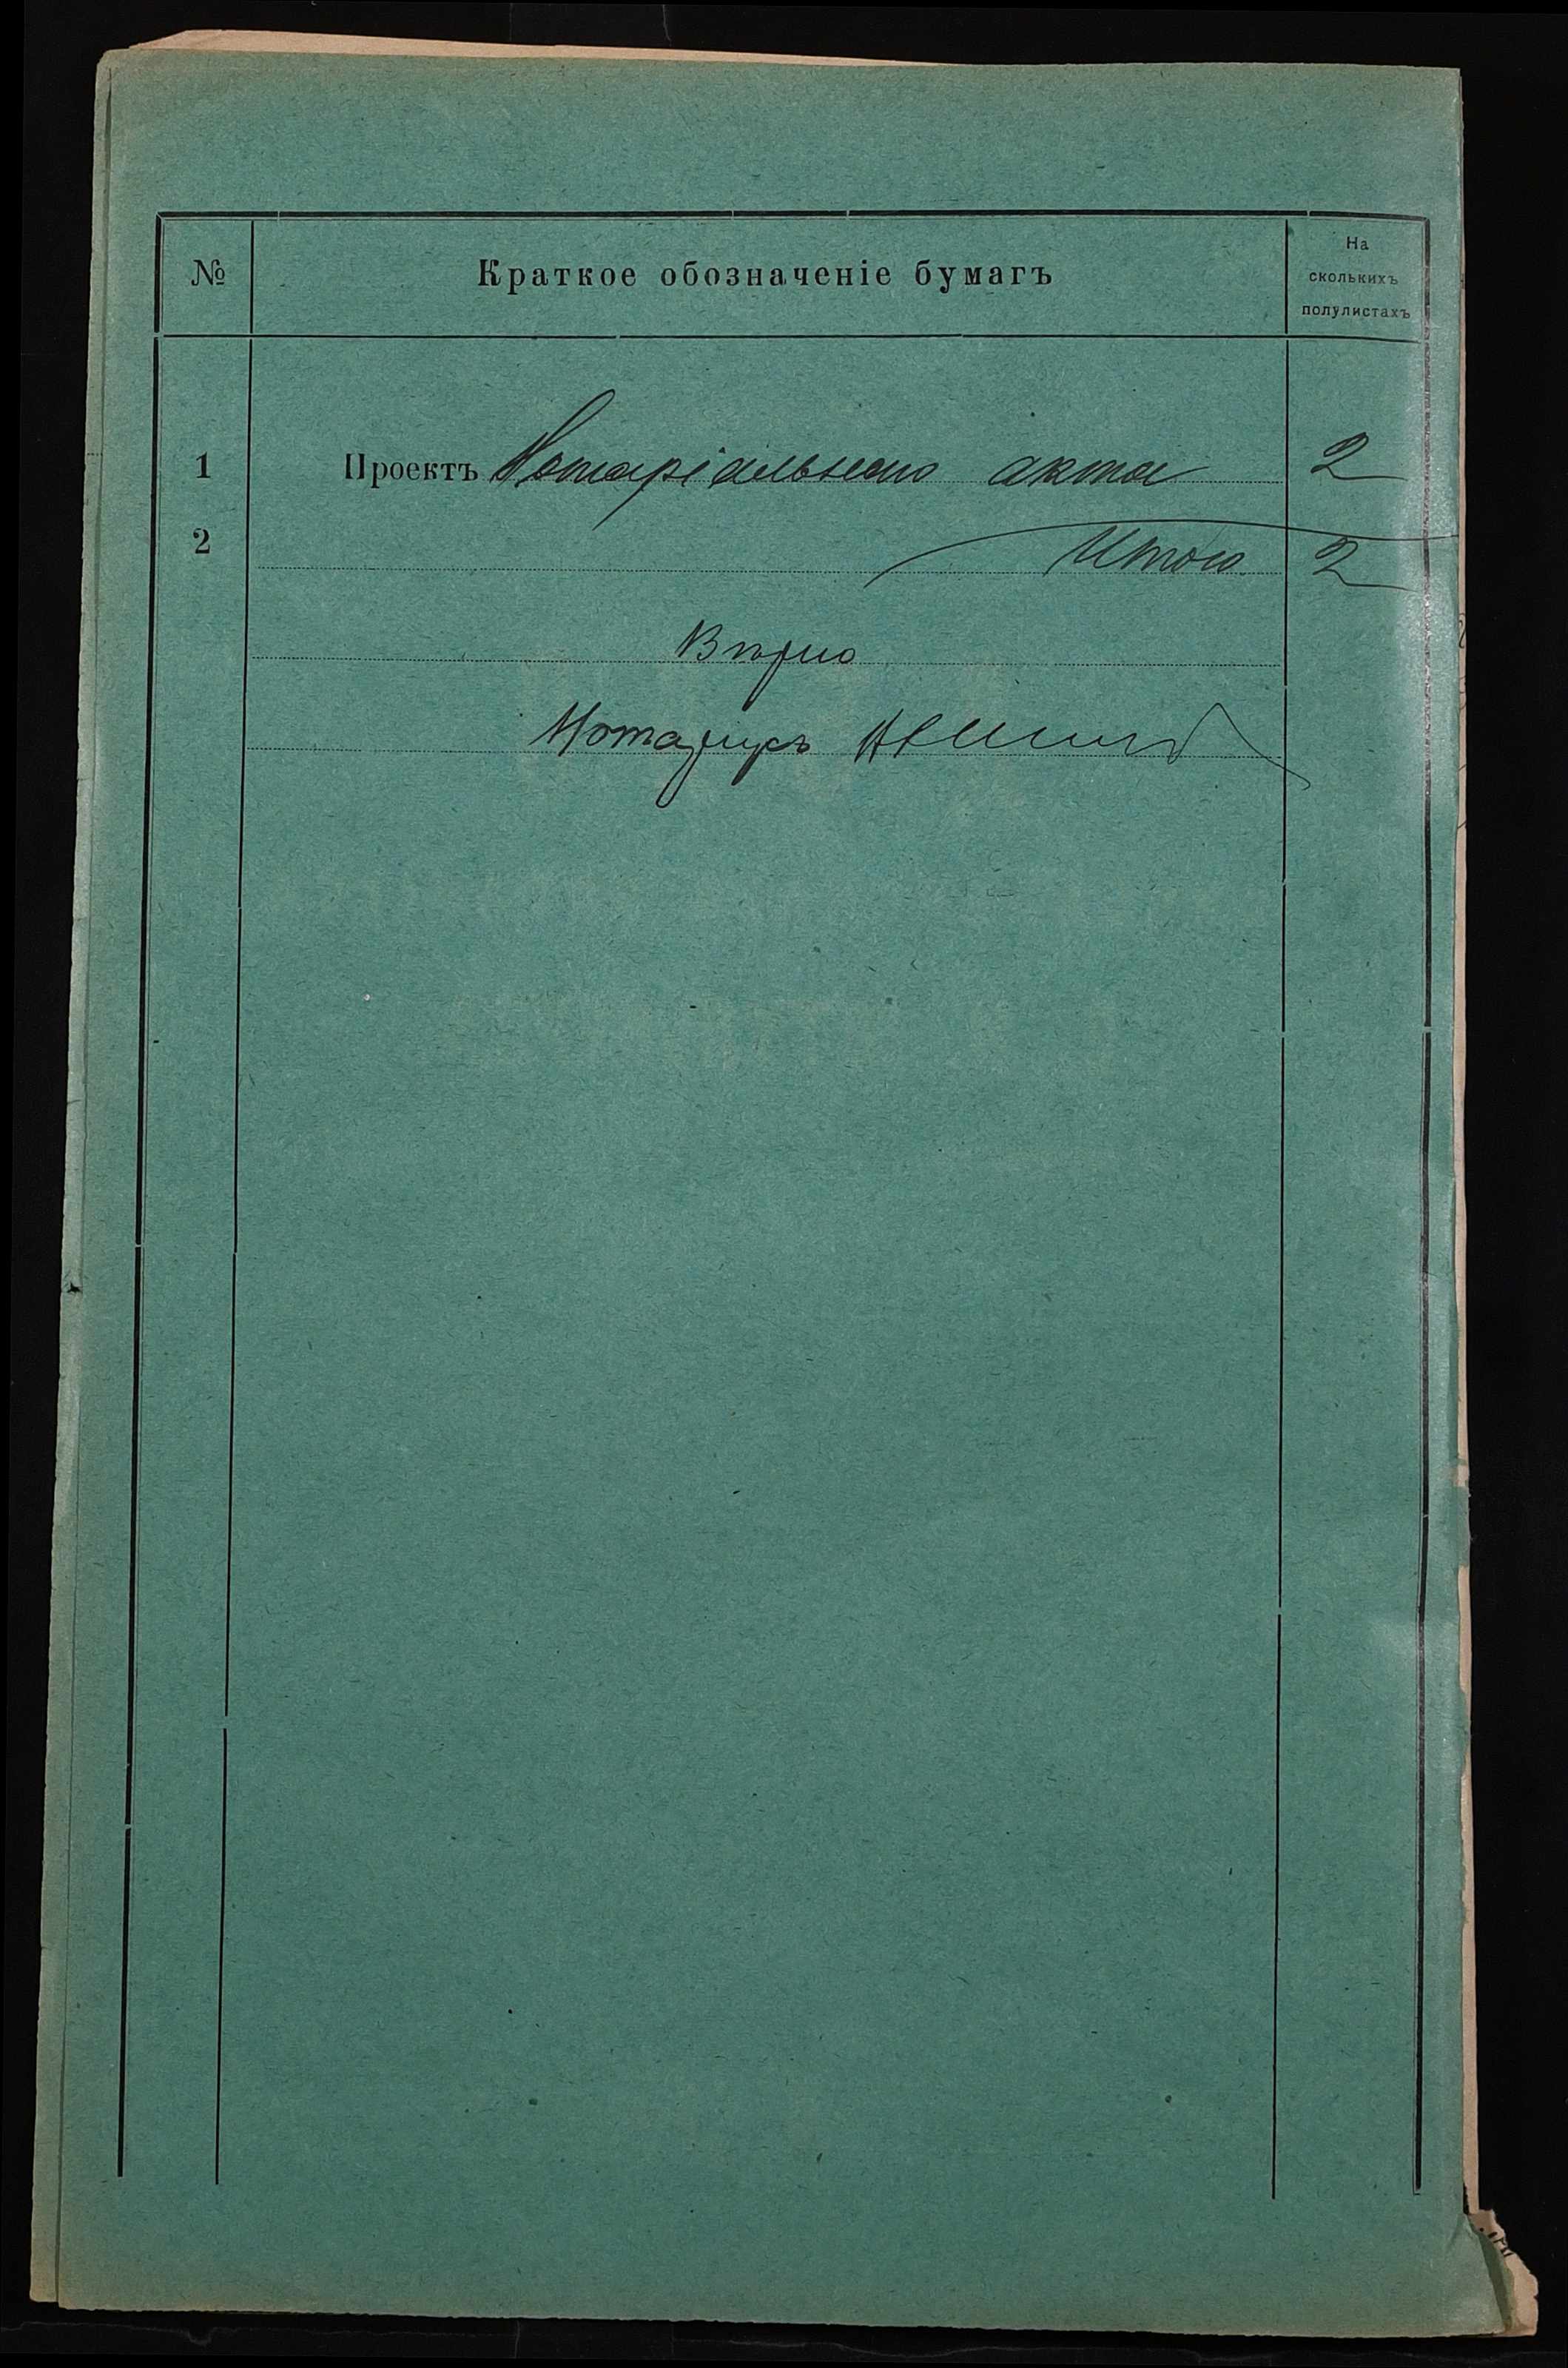 № Краткое обозначеніе бумагъ На
сколькихъ
полулистахъ
1 Проектъ Нотаріальнаго акта 2
2 Итого 2
Вѣрно
Нотаріусъ